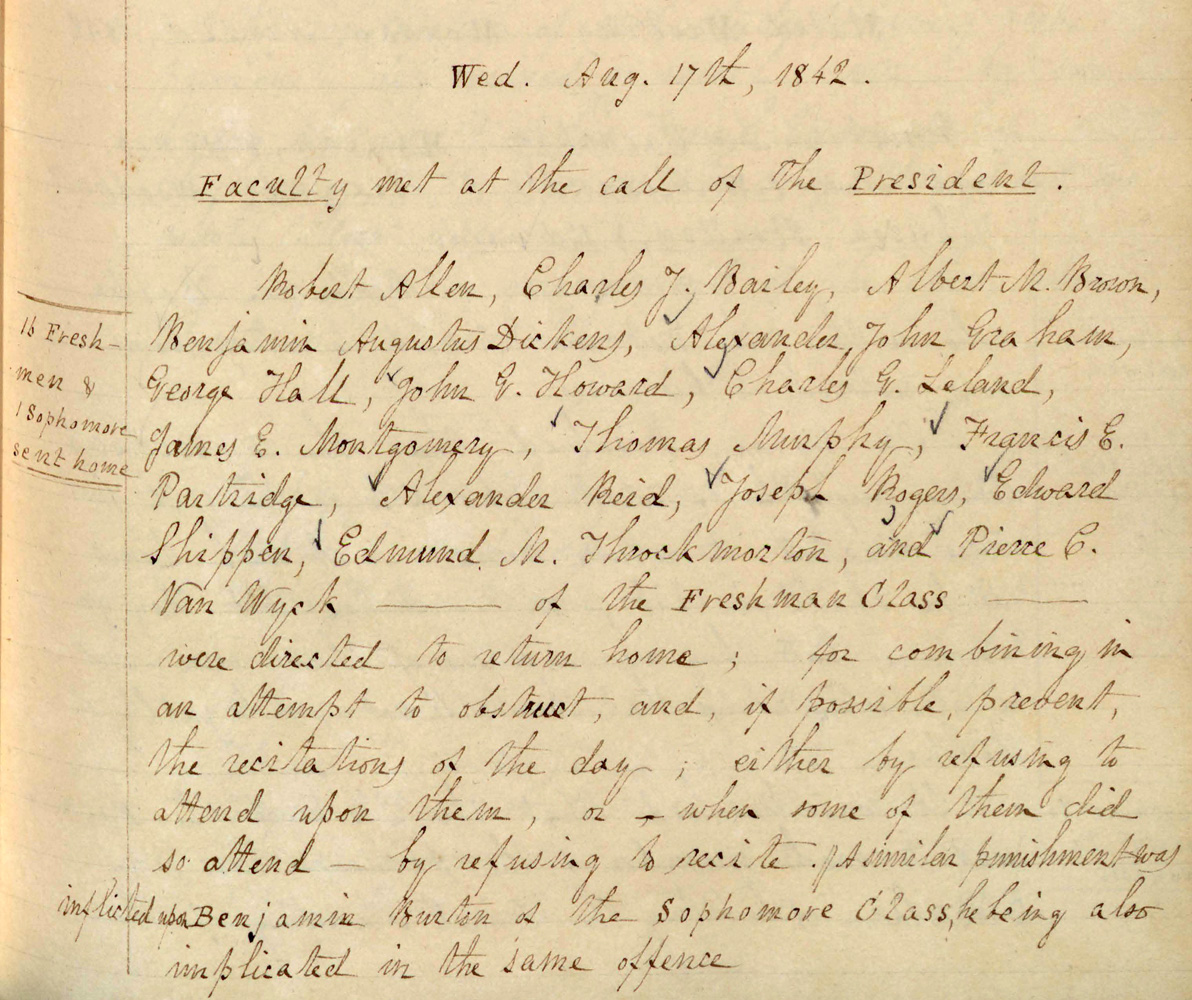 Wed. Aug. 17th, 1842.
Faculty met at the call of the President.
Robert Allen, Charles J. Bailey, Albert M. Brown,
16 Fresh-
men &
1 Sophomore
sent home
Benjamin Augustus Dickens, Alexander John Graham,
George Hall, John G. Howard, Charles G. Leland,
James E. Montgomery, Thomas Murphy, Francis E.
Partridge, Alexander Reid, Joseph Rogers, Edward
Shippen, Edmund M. Throckmorton, and Pierre C.
Van Wyck —— of the Freshman Class ——
were directed to return home; for combining in
an attempt to obstruct, and, if possible, prevent,
the recitations of the day; either by refusing to
attend upon them, or – when some of them did
so attend – by refusing to recite. A similar punishment was
inflicted upon Benjamin Burton of the Sophomore Class, he being also
implicated in the same offence